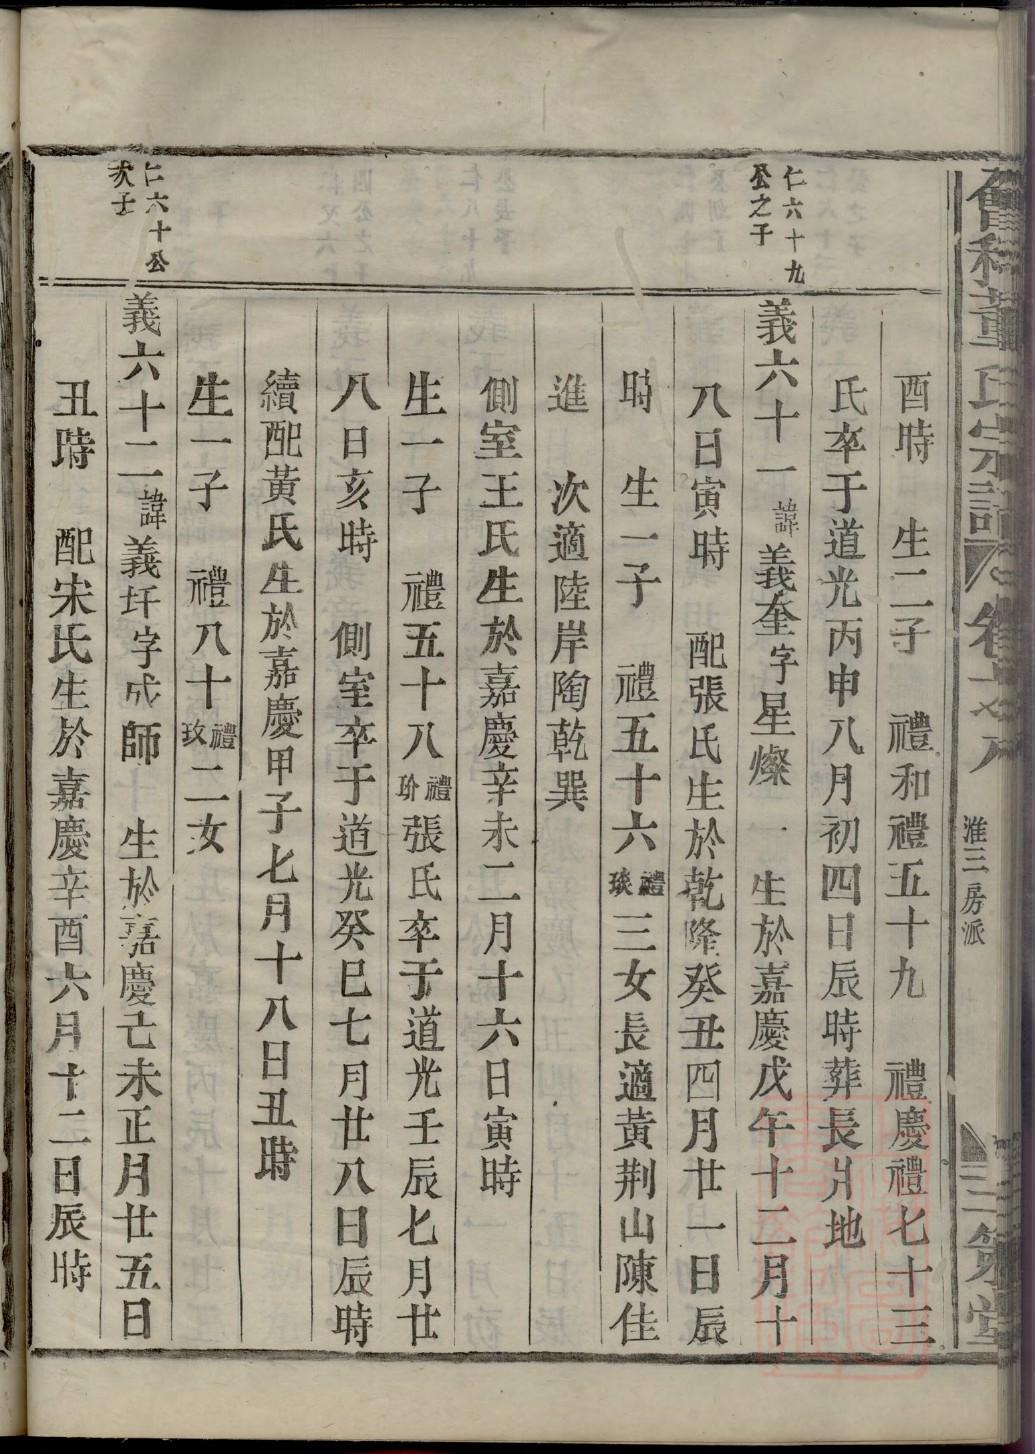 董氏宗譜
淮三房派
三策堂
酉時 生二子 禮和禮五十九 禮慶禮七十三
氏卒于道光丙申八月初四日辰時葬長爿地
仁六十九
公之子
義六十一諱義奎字星燦 生於嘉慶戊午十二月十
八日寅時 配張氏生於乾隆癸丑四月廿一日辰
時 生一子 禮五十六禮琰三女長適黃荆山陳佳
進 次適陸岸陶乾巽
側室王氏生於嘉慶辛未二月十六日寅時
生一子 禮五十八禮玠張氏卒于道光壬辰七月廿
八日亥時 側室卒于道光癸巳七月廿八日辰時
續配黃氏生於嘉慶甲子七月十八日丑時
生一子 禮八十禮玫二女
仁六十公
次子
義六十二諱義玕字成師 生於嘉慶己未正月廿五日
丑時 配宋氏生於嘉慶辛酉六月十二日辰時